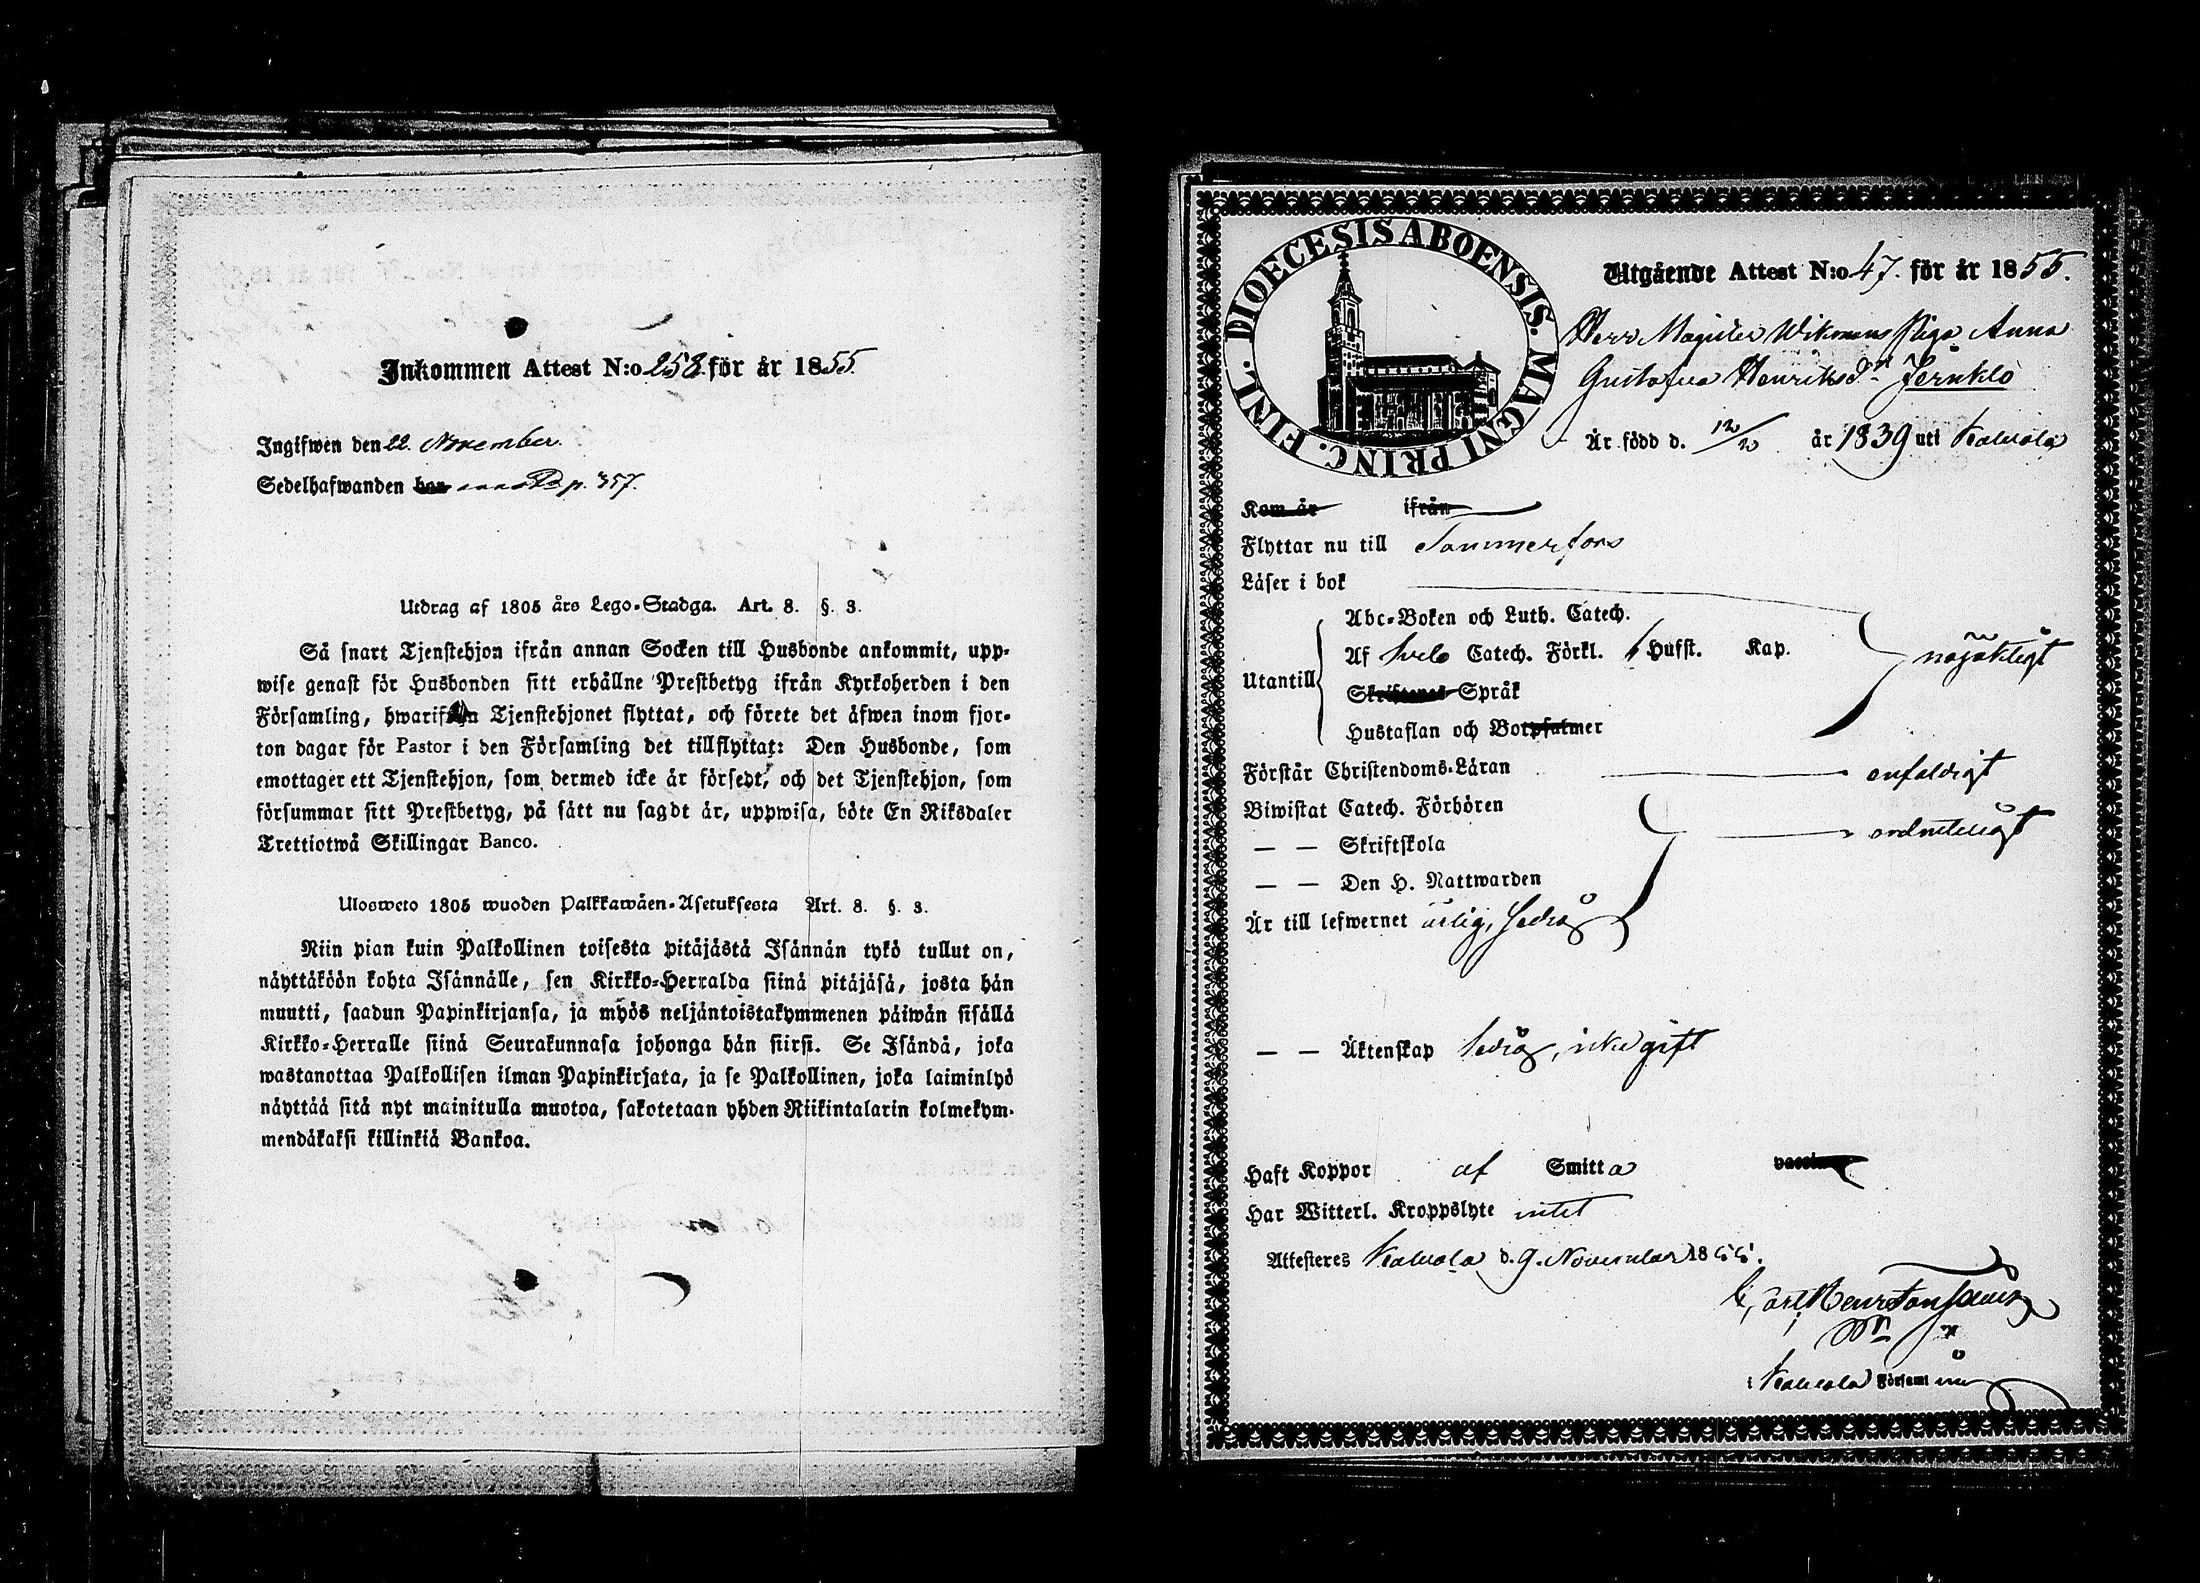 Inkommen Attest N:o 258 för år 1855.
Ingifwen den 22. November.
Sedelhafwanden har p. 357.
Utdrag af 1805 års Lego-Stadga. Art. 8. §. 3.
Så snart Tjenstehjon ifrån annan Socken till Husbonde ankommit, upp-
wise genast för Husbonden sitt erhållne Prestbetyg ifrån Kyrkoherden i den
Församling, hwarifrån Tjenstehjonet flyttat, och förete det äfwen inom fjor-
ton dagar för Pastor i den Församling det tillflyttat: Den Husbonde, som
emottager ett Tjenstehjon, som dermed icke är försedt, och det Tjenstehjon, som
försummar sitt Prestbetyg, på sätt nu sagdt är, uppwisa, böte En Riksdaler
Trettiotwå Skillingar Banco.
Ulosweto 1805 wuoden Palkkawäen-Asetuksesta Art. 8. §. 3.
Niin pian kuin Palkollinen toisesta pitäjästä Isännän tykö tullut on,
näyttäköön kohta Isännälle, sen Kirkko-Herralda siinä pitäjäsä, josta hän
muutti, saadun Papinkirjansa, ja myös neljäntoistakymmenen päiwän sisällä
Kirkko-Herralle siinä Seurakunnasa johonga hän siirsi. Se Isändä, joka
wastanottaa Palkollisen ilman Papinkirjata, ja se Palkollinen, joka laiminlyö
näyttää sitä nyt mainitulla muotoa, sakotetaan yhden Riikintalarin kolmekym-
mendäkaksi killinkiä Bankoa.
FINL. DIOECESIS ABOENSIS. MAGNI PRINC.
Utgående Attest N:o 47. för år 1855.
Herr Magister Wikmans Piga Anna
Gustafva Henriksdr Jernklo
Är född d. 12/2 år 1839 uti Kalvola
Kom år ifrån
Flyttar nu till Tammerfors
Läser i bok
Abc-Boken och Luth. Catech.
Af Svebe Catech. Förkl. 6 Hufst. Kap. nöjaktigt
Utantill
Skriftenes Språk
Hustaflan och Botpsalmer
Förstår Christendoms-Läran enfaldigt
Biwistat Catech. Förhören
— — Skriftskola ordenteligt
— — Den H. Nattwarden
Är till lefwernet ärlig, sedig
— — Äktenskap ledig, icke gift
Haft Koppor af Smitta vaccin
Har Witterl. Kroppslyte intet
Attesteres Kalvola d. 9. November 1855.
i Kalvola Församl